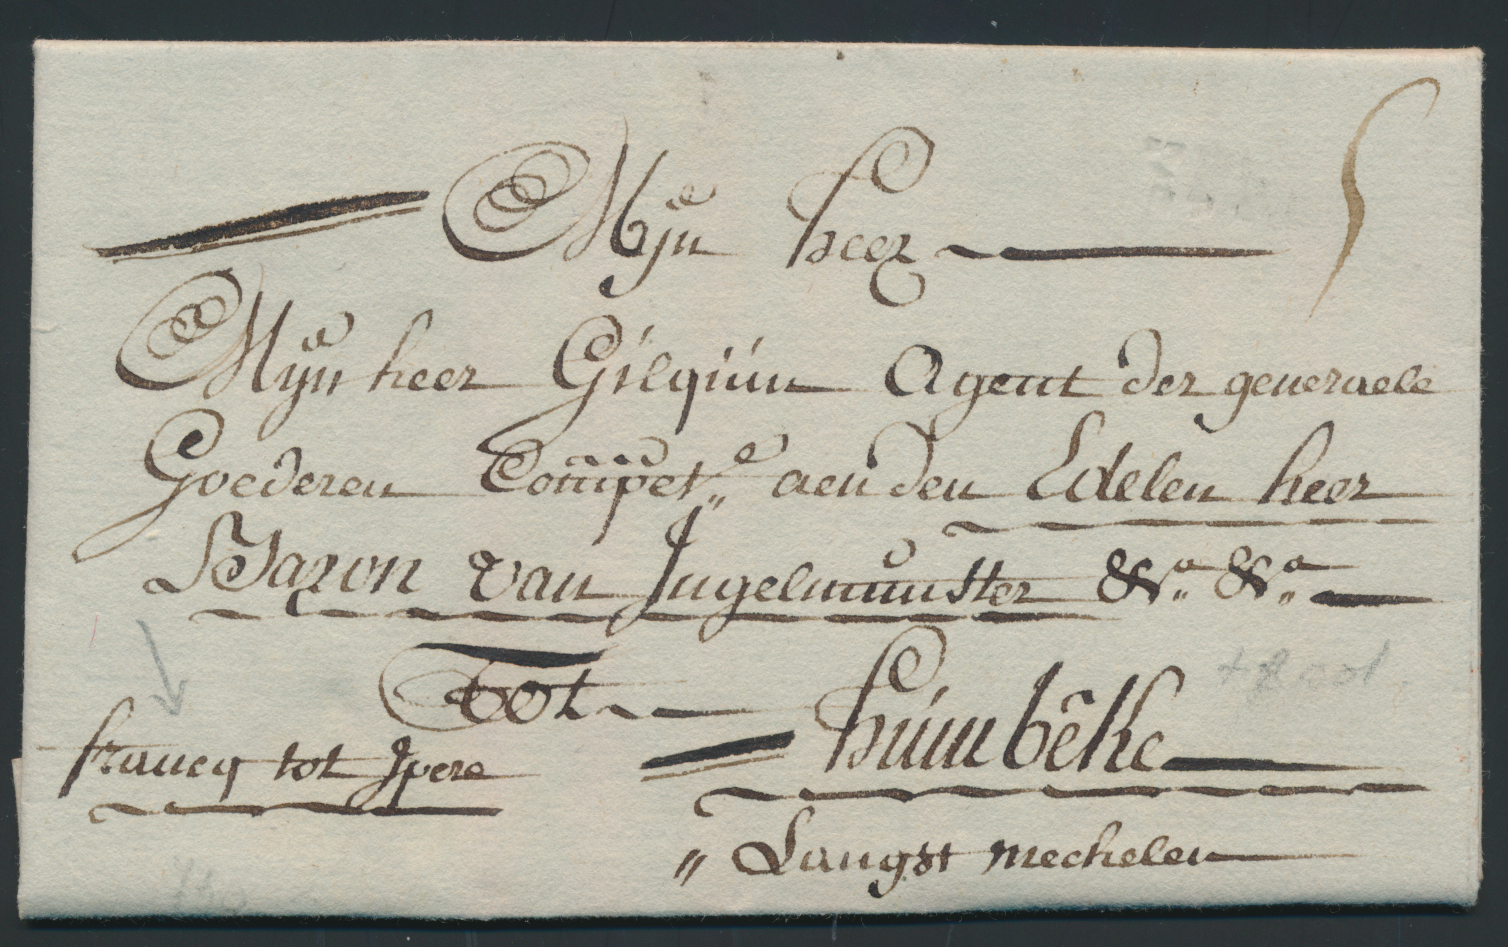 Mÿn heer
Mÿn heer Gilquin Agent der generaele
Goederen Compet.e aen den Edelen heer
Baron van Ingelmunster &a. &a.
Tot
humbêke
francq tot Ipere
" Langst mechelen